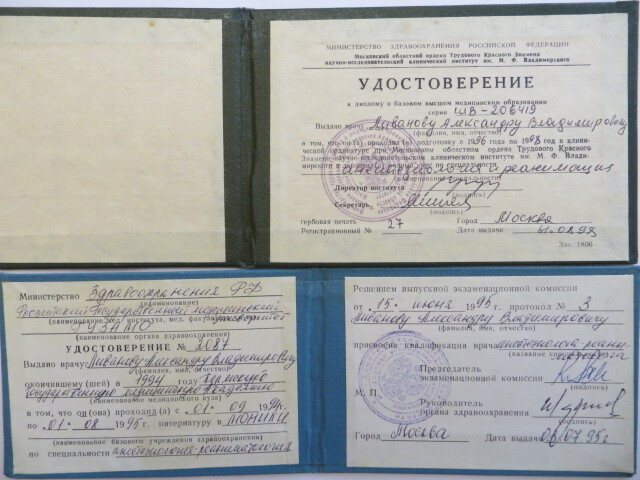 МИНИСТЕРСТВО ЗДРАВООХРАНЕНИЯ РОССИЙСКОЙ ФЕДЕРАЦИИ
Московский областной ордена Трудового Красного Знамени
научно-исследовательский клинический институт им. М. Ф. Владимирского
УДОСТОВЕРЕНИЕ
к диплому о базовом высшем медицинском образовании
серия ШВ-206419
Выдано врачу Ливанову Александру Владимировичу
(фамилия, имя, отчество)
в том, что он (а) прошел (а) подготовку с 1996 года по 1998 год в клини-
ческой ординатуре при Московском областном ордена Трудового Красного
Знамени научно-исследовательском клиническом институте им. М. Ф. Влади-
мирского по специальности
анестезиология и реанимация
Директор института
(подпись)
Секретарь
(подпись)
гербовая печать Город Москва
Регистрационный № 27 Дата выдачи 31.08.98
Зак. 1806
Министерство Здравоохранения РФ
(наименование)
Российский Государственный медицинский университет
(наименование мед. института, мед. факультета университета)
(наименование органа здравоохранения)
УДОСТОВЕРЕНИЕ № 2087
Выдано врачу Ливанову Александру Владимировичу
(фамилия, имя, отчество)
окончившему (шей) в 1994 году
Государственную Академию
(наименование медицинского вуза)
в том, что он (она) проходил (а) с 01 · 09 1994г.
по 01 · 08 1995 г. интернатуру в МОНИКИ
(наименование базового учреждения здравоохранения)
по специальности анестезиология-реаниматология
Решением выпускной экзаменационной комиссии
от „15„ июня 1995 г. протокол № 3
Ливанову Александру Владимировичу
(фамилия, имя, отчество)
присвоена квалификация врача анестезиолога реани-
матолога
(название специальности)
Председатель
экзаменационной комиссии
(подпись)
М. П.
Руководитель
органа здравоохранения
(подпись)
Город Москва Дата выдачи 01.07.95г